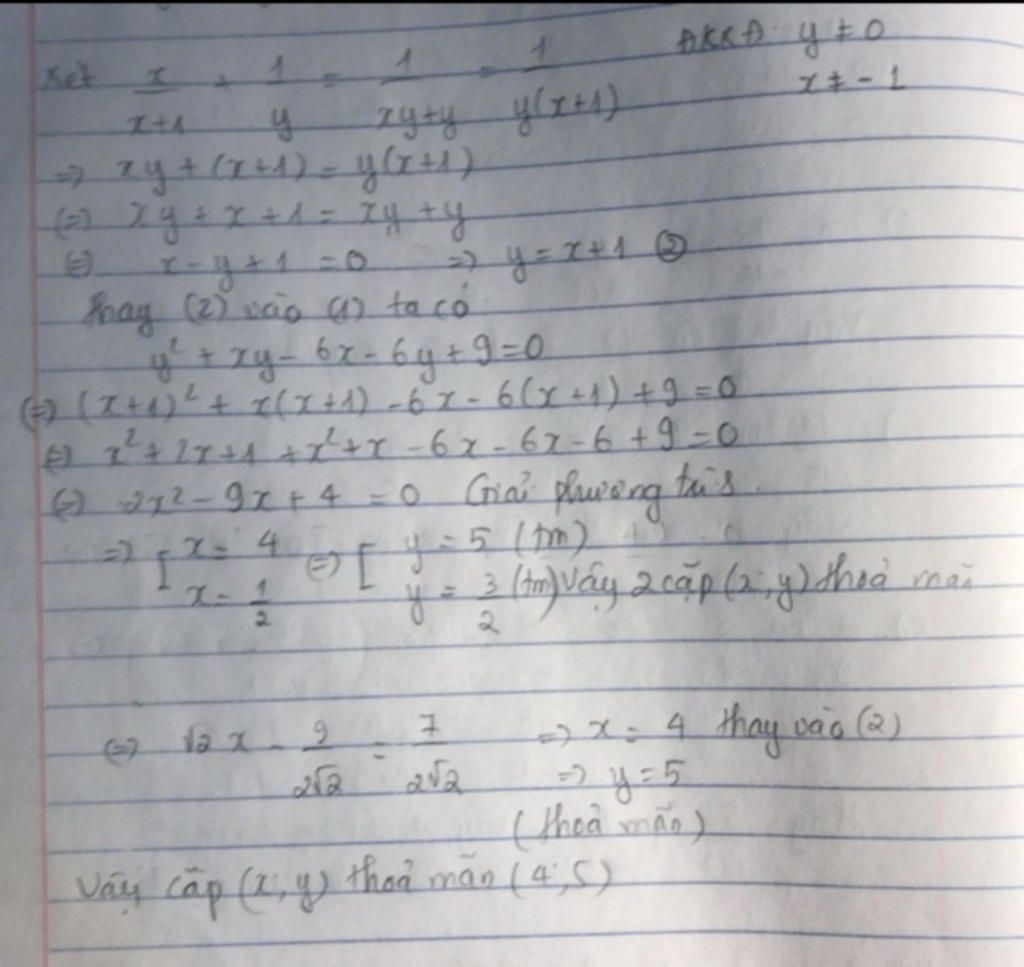 Xét x/(x+1) + 1/y = 1/(xy+y) = 1/(y(x+1)) ĐKXĐ: y ≠ 0
x ≠ -1
=> xy + (x+1) = y(x+1)
(=) xy + x + 1 = xy + y
(=) x - y + 1 = 0 => y = x+1 ②
Thay (2) vào (1) ta có
y² + xy - 6x - 6y + 9 = 0
(=) (x+1)² + x(x+1) - 6x - 6(x+1) + 9 = 0
(=) x² + 2x + 1 + x² + x - 6x - 6x - 6 + 9 = 0
(=) 2x² - 9x + 4 = 0 Giải phương
=> [ x = 4 (=) [ y = 5 (tm)
x = 1/2 y = 3/2 (tm) Vậy 2 cặp (x, y) thoả mãn
(=) √2 x - 9/(2√2) = 7/(2√2) => x = 4 thay vào (2)
=> y = 5
(thoả mãn)
Vậy cặp (x, y) thoả mãn (4; 5)